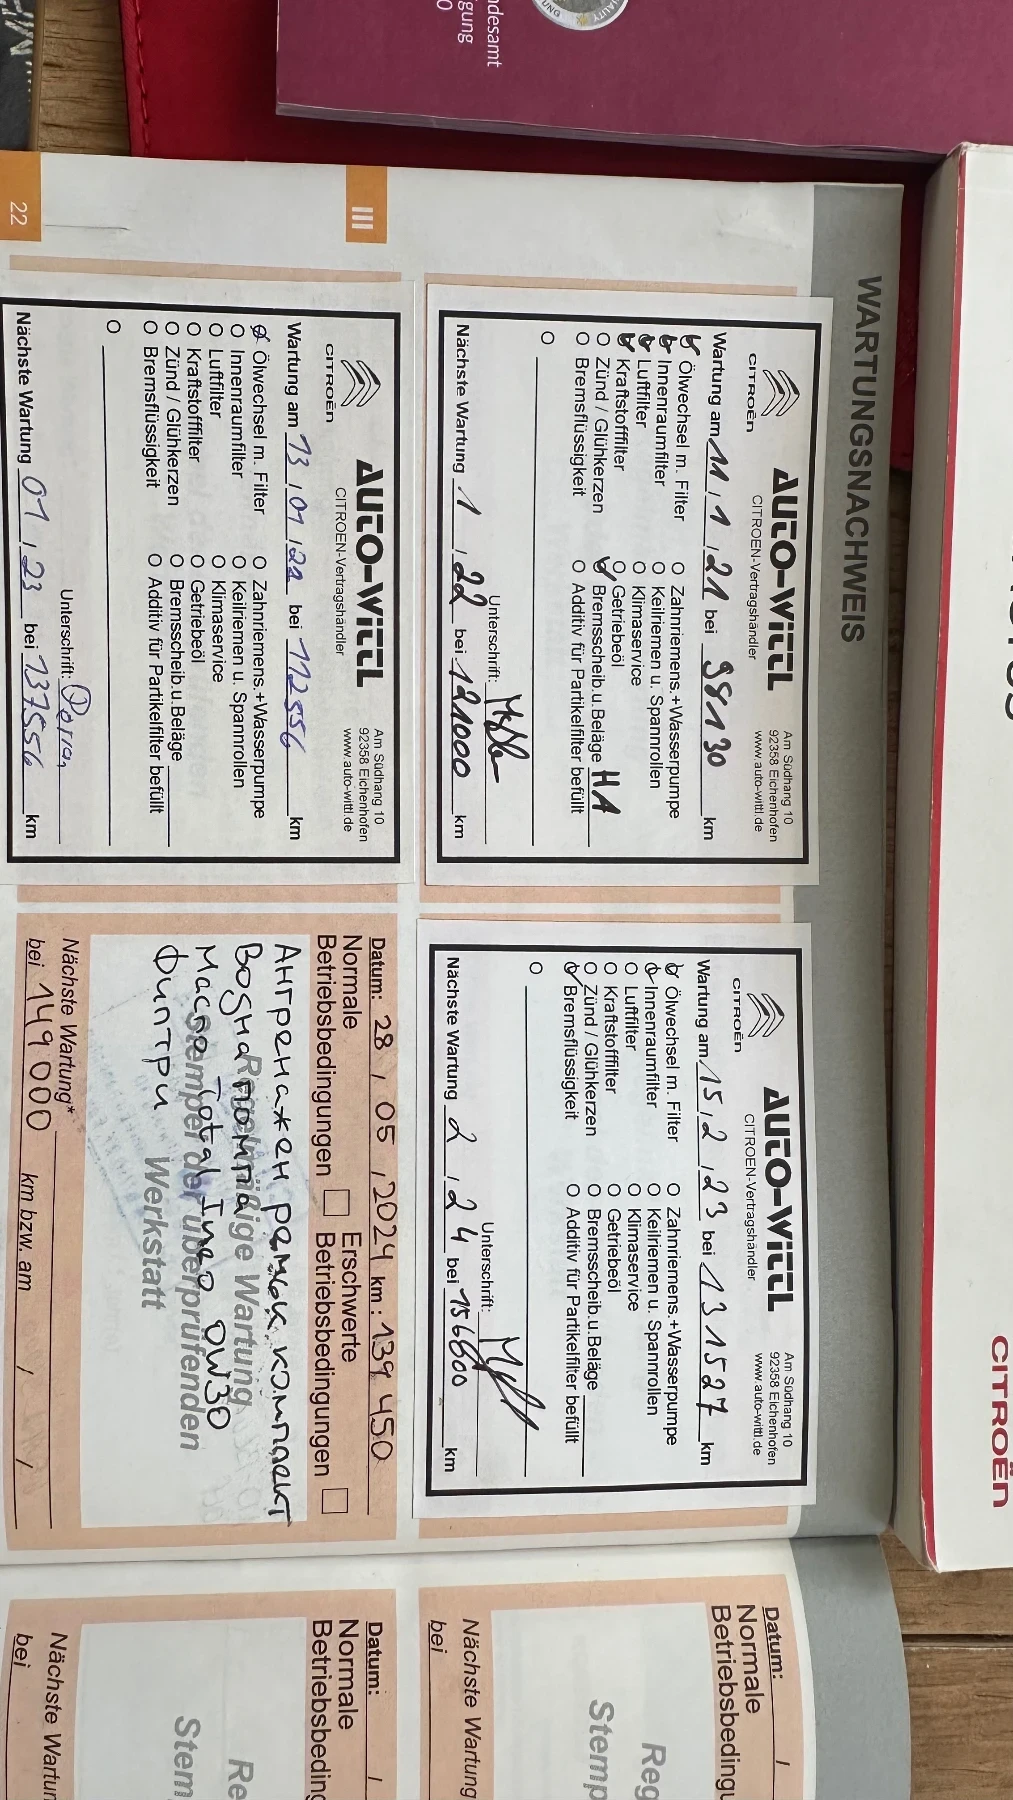 WARTUNGSNACHWEIS
CITROËN
AUTO-WITTL
CITROEN-Vertragshändler
Am Südhang 10
92358 Eichenhofen
www.auto-wittl.de
Wartung am 11 / 1 / 21 bei 98130 km
Ölwechsel m. Filter
Innenraumfilter
Luftfilter
Kraftstofffilter
Zünd / Glühkerzen
Bremsflüssigkeit
Zahnriemens.+Wasserpumpe
Keilriemen u. Spannrollen
Klimaservice
Getriebeöl
Bremsscheib.u.Beläge HA
Additiv für Partikelfilter befüllt
Unterschrift:
Nächste Wartung 1 / 22 bei 121000 km
CITROËN
AUTO-WITTL
CITROEN-Vertragshändler
Am Südhang 10
92358 Eichenhofen
www.auto-wittl.de
Wartung am 15 / 2 / 23 bei 131527 km
Ölwechsel m. Filter
Innenraumfilter
Luftfilter
Kraftstofffilter
Zünd / Glühkerzen
Bremsflüssigkeit
Zahnriemens.+Wasserpumpe
Keilriemen u. Spannrollen
Klimaservice
Getriebeöl
Bremsscheib.u.Beläge
Additiv für Partikelfilter befüllt
Unterschrift:
Nächste Wartung 2 / 24 bei 156600 km
III
CITROËN
AUTO-WITTL
CITROEN-Vertragshändler
Am Südhang 10
92358 Eichenhofen
www.auto-wittl.de
Wartung am 13 / 01 / 22 bei 112556 km
Ölwechsel m. Filter
Innenraumfilter
Luftfilter
Kraftstofffilter
Zünd / Glühkerzen
Bremsflüssigkeit
Zahnriemens.+Wasserpumpe
Keilriemen u. Spannrollen
Klimaservice
Getriebeöl
Bremsscheib.u.Beläge
Additiv für Partikelfilter befüllt
Unterschrift:
Nächste Wartung 01 / 23 bei 137556 km
Datum: 28 / 05 / 2024 km : 139 450
Normale Betriebsbedingungen
Erschwerte Betriebsbedingungen
Regelmäßige Wartung
Stempel der überprüfenden
Werkstatt
Ангренажен ремък комплект
Водна помпа
Масло Total Ineo 0W30
Филтри
Nächste Wartung*
bei 149 000 km bzw. am / /
22
Datum: /
Normale
Betriebsbedingu
Reg
Stemp
Nächste Wartung
bei
Datum: /
Normale
Betriebsbeding
Re
Stem
Nächste Wartun
bei
CITROËN
ndesamt
gung
0